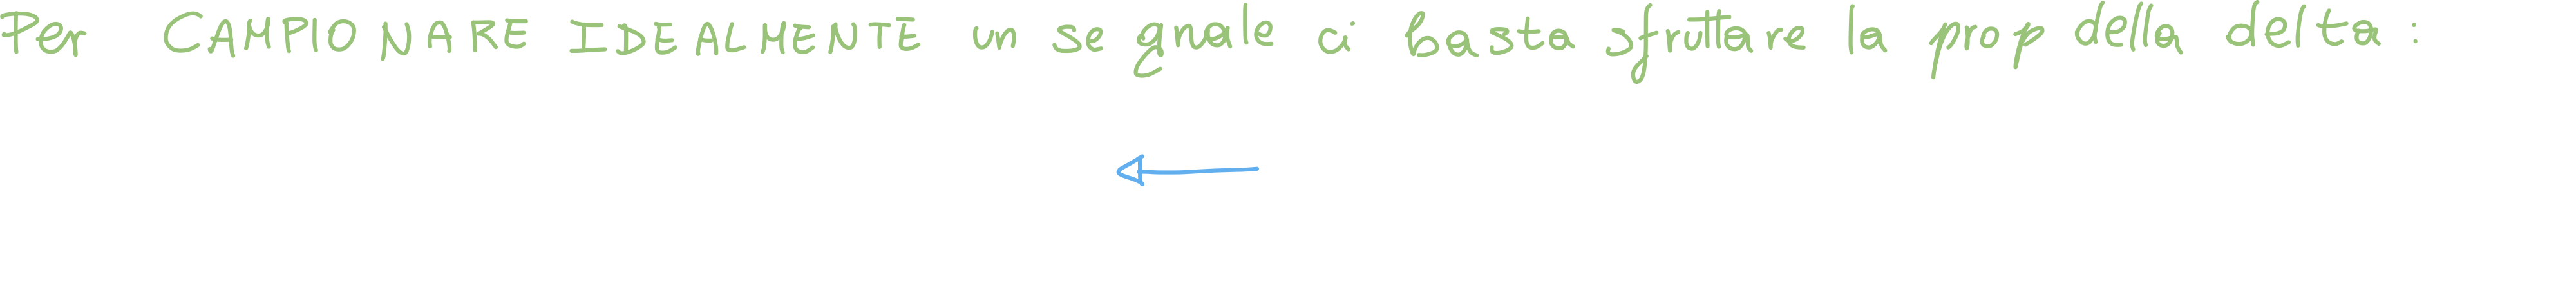 Per CAMPIONARE IDEALMENTE un segnale ci basta sfruttare la prop della delta: